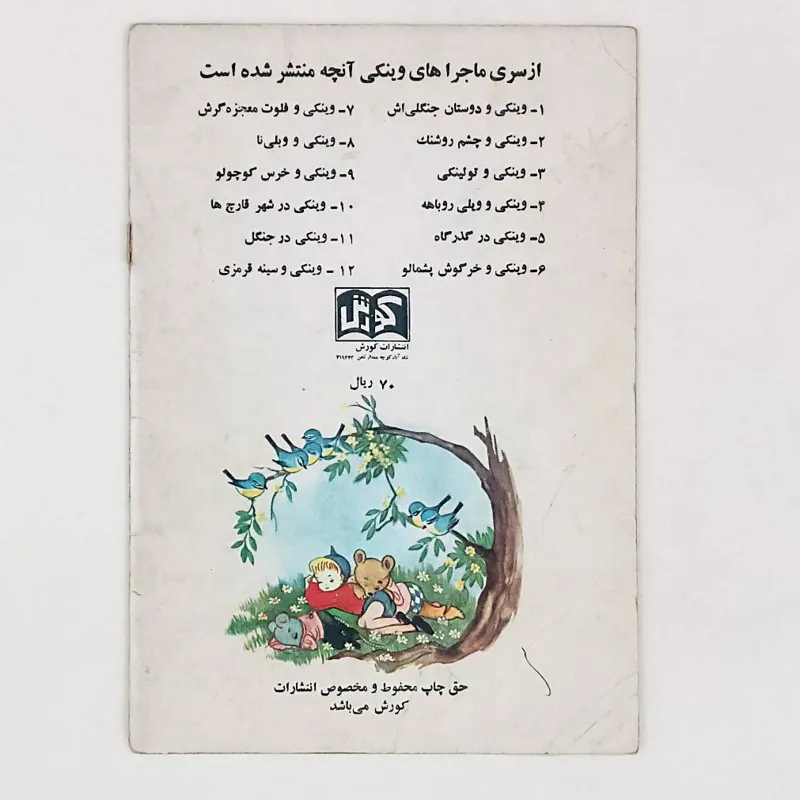 از سری ماجرا های وینکی آنچه منتشر شده است
۱- وینکی و دوستان جنگلی‌اش
۲- وینکی و چشم روشنك
۳- وینکی و توئینکی
۴- وینکی و ویلی روباهه
۵- وینکی در گذرگاه
۶- وینکی و خرگوش پشمالو
۷- وینکی و فلوت معجزه‌گرش
۸- وینکی و ویلی‌نا
۹- وینکی و خرس کوچولو
۱۰- وینکی در شهر قارچ ها
۱۱- وینکی در جنگل
۱۲- وینکی و سینه قرمزی
کورش
انتشارات کورش
شاه آباد کوچه ممتاز تلفن
۷۰ ریال
حق چاپ محفوظ و مخصوص انتشارات
کورش می‌باشد